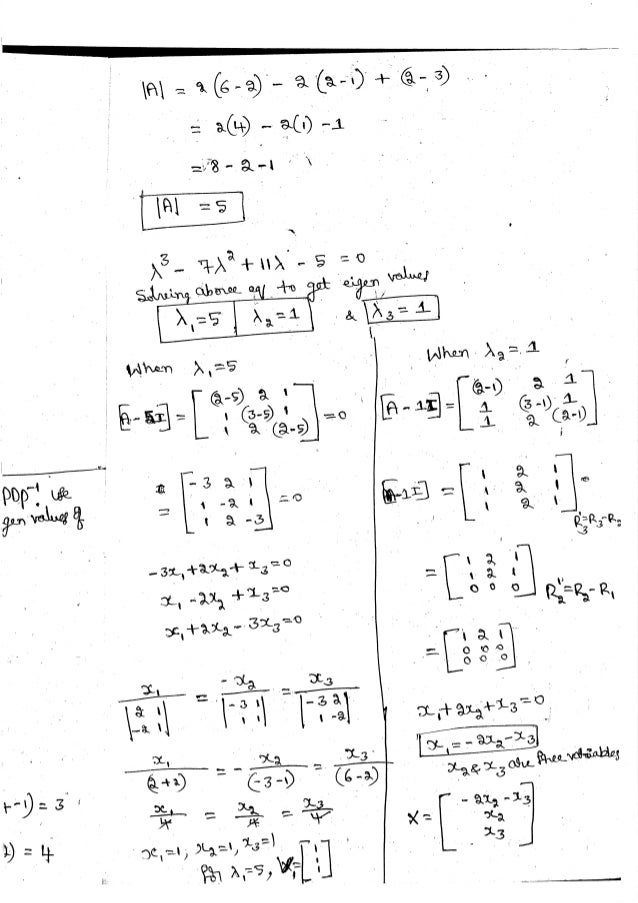 |A| = 2(6-2) - 2(2-1) + (2-3)
= 2(4) - 2(1) -1
= 8 - 2 - 1
|A| = 5
λ³ - 7λ² + 11λ - 5 = 0
Solving above eq to get eigen values
λ₁=5 λ₂=1 & λ₃=1
When λ₁=5
[A - 5I] = [(2-5) 2 1
1 (3-5) 1
1 2 (2-5)] = 0
= [-3 2 1
1 -2 1
1 2 -3] = 0
-3x₁+2x₂+x₃=0
x₁-2x₂+x₃=0
x₁+2x₂-3x₃=0
x₁/|2 1
-2 1| = -x₂/|-3 1
1 1| = x₃/|-3 2
1 -2|
x₁/(2+2) = -x₂/(-3-1) = x₃/(6-2)
x₁/4 = x₂/4 = x₃/4
x₁=1, x₂=1, x₃=1
for λ₁=5, X₁=[1
1
1]
When λ₂=1
[A - 1I] = [(2-1) 2 1
1 (3-1) 1
1 2 (2-1)]
[A-1I] = [1 2 1
1 2 1
1 2 1]
R₃'=R₃-R₂
= [1 2 1
1 2 1
0 0 0] R₂'=R₂-R₁
= [1 2 1
0 0 0
0 0 0]
x₁+2x₂+x₃=0
x₁=-2x₂-x₃
x₂ & x₃ are free variables
X = [-2x₂-x₃
x₂
x₃]
PDP⁻¹ use
gen values of
-1) = 3
2) = 4